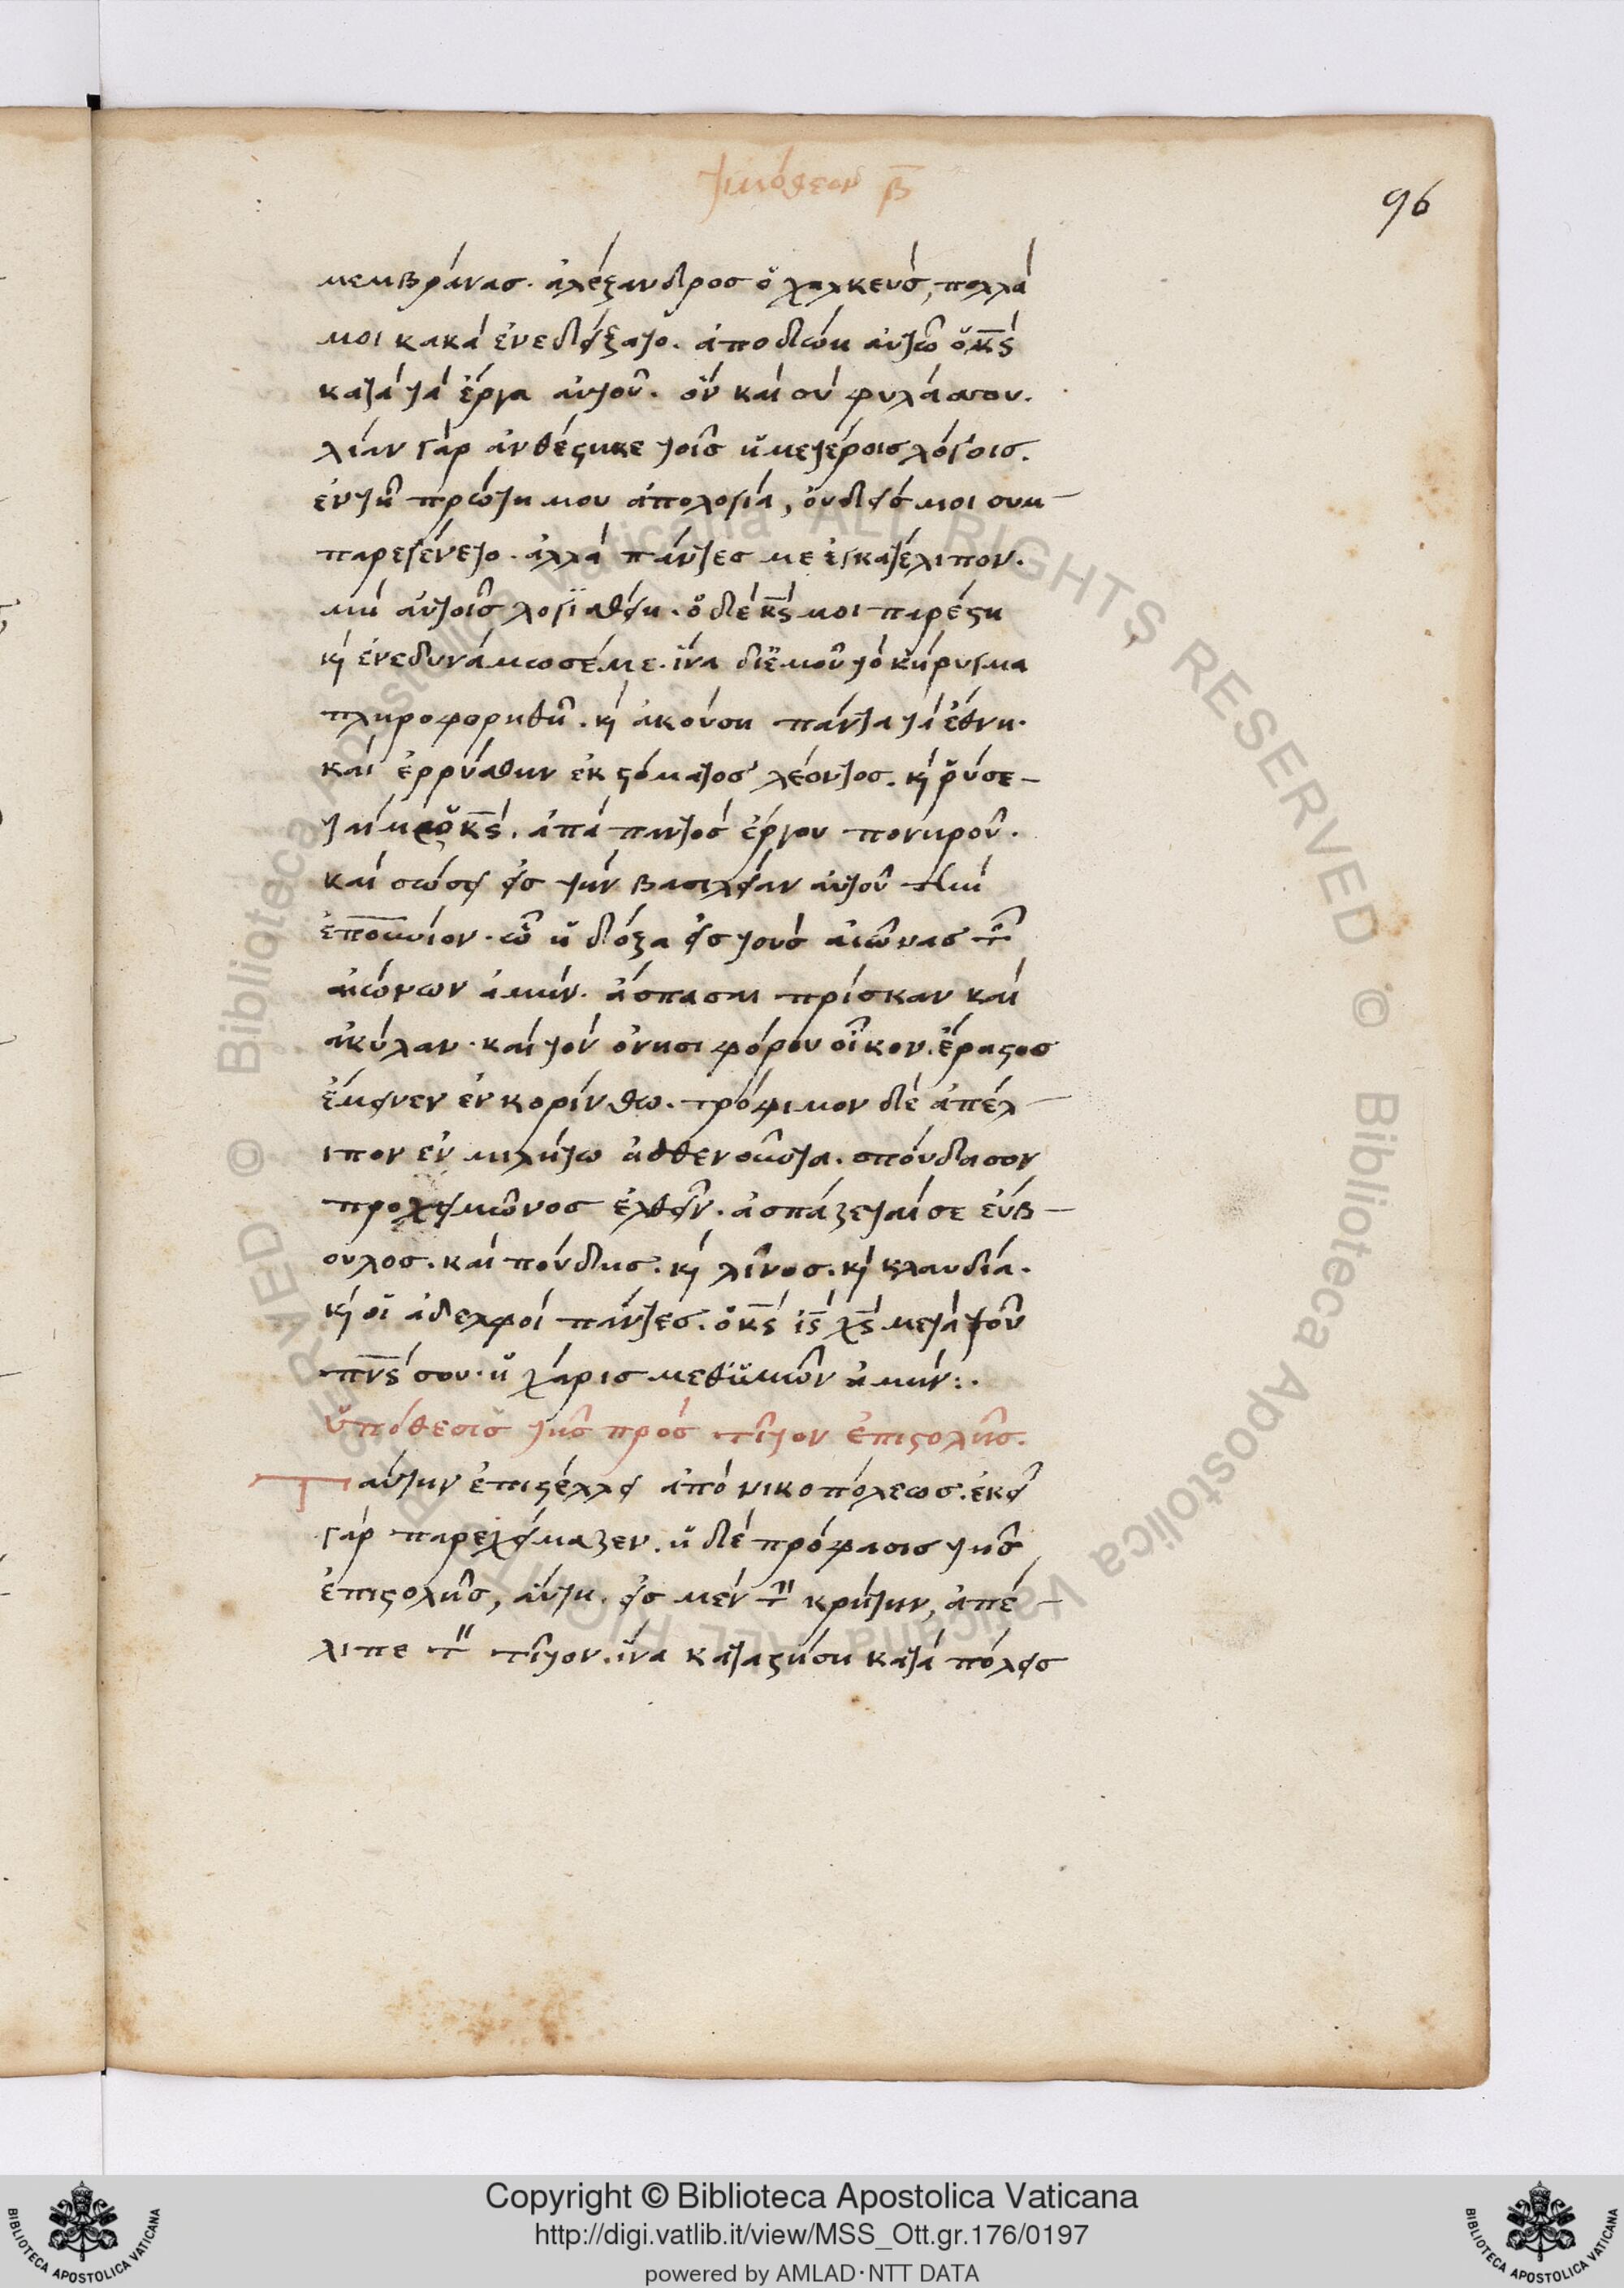 τιμόθεον β̅
96
μεμβράνας. ἀλέξανδρος ὁ χαλκεύς, πολλά
μοι κακά ἐνεδείξατο. ἀποδώη αὐτῶ ὁ κ̅ς
κατά τά ἔργα αὐτοῦ. ὅν καί σύ φυλάσσου.
λίαν γάρ ἀνθέστηκε τοῖς ἡμετέροις λόγοις.
ἐν τῆ πρώτη μου ἀπολογία, οὐδείς μοι συμ-
παρεγένετο. ἀλλά πάντες με ἐγκατέλιπον.
μή αὐτοῖς λογισθείη. ὁ δέ κ̅ς μοι παρέστη
κ ἐνεδυνάμωσέ με. ἵνα δι ἐμοῦ τό κήρυγμα
πληροφορηθῆ. κ ἀκούση πάντα τά ἔθνη.
καί ἐρρύσθην ἐκ στόματος λέοντος. κ ῥύσε-
ταί με ὁ κ̅ς. ἀπό παντός ἔργου πονηροῦ.
καί σώσει εἰς τήν βασιλείαν αὐτοῦ τήν
ἐπουνιον. ὧ ἡ δόξα εἰς τούς αἰῶνας τ
αἰώνων ἀμήν. ἄσπασαι πρίσκαν καί
ἀκύλαν. καί τόν ὀνησιφόρου οἶκον. ἔραστος
ἔμεινεν ἐν κορίνθω. τρόφιμον δέ ἀπέλ-
ιπον ἐν μιλήτω ἀσθενοῦντα. σπούδασον
προ χειμῶνος ἐλθεῖν. ἀσπάζεταί σε εὔβ-
ουλος. καί πούδης. κ λῖνος. κ κλαυδία.
κ οἱ ἀδελφοί πάντες. ὁ κ̅ς ἰ̅ς χ̅ς μετά τοῦ
πν̅ς σου. ἡ χάρις μεθ ἡμῶν ἀμήν:.
ὑπόθεσις τῆς πρός τῖτον ἐπιστολῆς.
Ταύτην ἐπιστέλλει ἀπό νικοπόλεως. ἐκεῖ
γάρ παρεχείμαζεν. ἡ δέ πρόφασις τῆς
ἐπιστολῆς, αὕτη. εἰς μέν τ κρήτην, ἀπέ-
λιπε τ τῖτον. ἵνα καταστήση κατά πόλεις
Copyright © Biblioteca Apostolica Vaticana
http://digi.vatlib.it/view/MSS_Ott.gr.176/0197
powered by AMLAD·NTT DATA